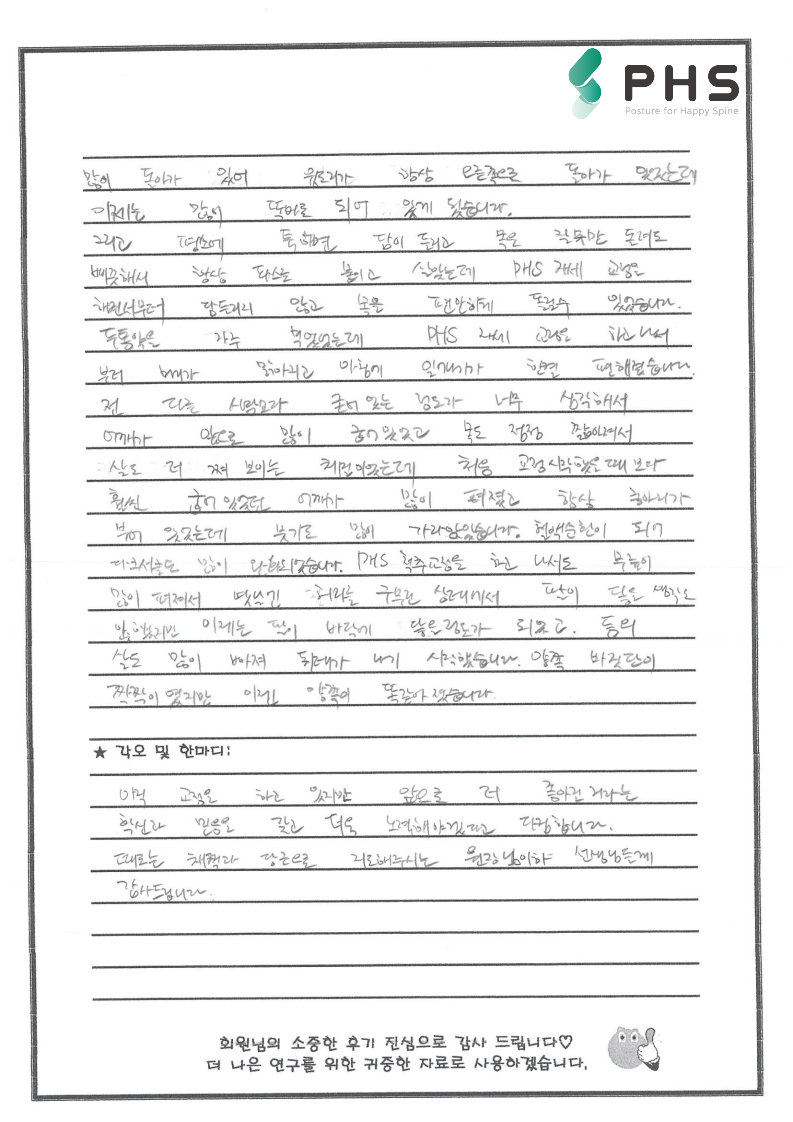 PHS
Posture for Happy Spine
많이 돌아가 있어 윗도리가 항상 오른쪽으로 돌아가 있었는데
이제는 많이 똑바로 되어 있게 됐습니다.
그리고 평소에 툭하면 담이 들리고 목은 잘못만 돌려도
삐끗해서 항상 파스를 붙이고 살았는데 PHS 자세 교정을
해면서부터 담들리지 않고 목을 편안하게 돌릴수 있었습니다.
두통약을 자주 먹었었는데 PHS 자세 교정을 하고 나서
부터 머리가 맑아지고 아침에 일어나기가 한결 편해졌습니다.
전 다른 사람보다 굽어 있는 정도가 너무 심각해서
어깨가 앞으로 많이 굽어 있었고 목도 점점 짧아져서
살도 더 쪄 보이는 체질이었는데 처음 교정시작 했을 때 보다
훨씬 굽어 있었던 어깨가 많이 펴졌고 항상 종아리가
부어 있었는데 붓기도 많이 가라앉았습니다. 혈액순환이 되어
다크서클도 많이 완화되었습니다. PHS 척추교정을 하고 나서도 무릎이
많이 펴져서 옛날엔 허리를 구부린 상태에서 팔이 닿을 생각도
안했지만 이제는 팔이 바닥에 닿을정도가 되었고. 등의
살도 많이 빠져 뒤태가 나기 시작했습니다. 양쪽 바짓단이
짝짝이 였지만 이젠 양쪽이 똑같아 졌습니다.
★ 각오 및 한마디:
아직 교정을 하고 있지만 앞으로 더 좋아진 거라는
확신과 믿음을 갖고 더욱 노력해야겠다고 다짐합니다.
때로는 채찍과 당근으로 지도해주시는 원장님이하 선생님들께
감사드립니다.
회원님의 소중한 후기 진심으로 감사 드립니다♡
더 나은 연구를 위한 귀중한 자료로 사용하겠습니다.